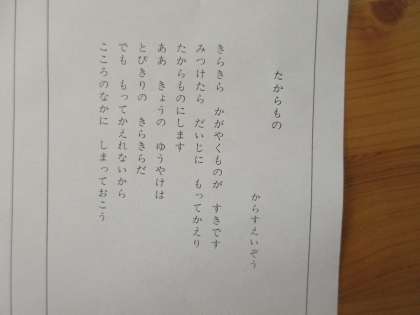 たからもの
からすえいぞう
きらきら　かがやくものが　すきです
みつけたら　だいじに　もってかえり
たからものにします
ああ　きょうの　ゆうやけは
とびきりの　きらきらだ
でも　もってかえれないから
こころのなかに　しまっておこう